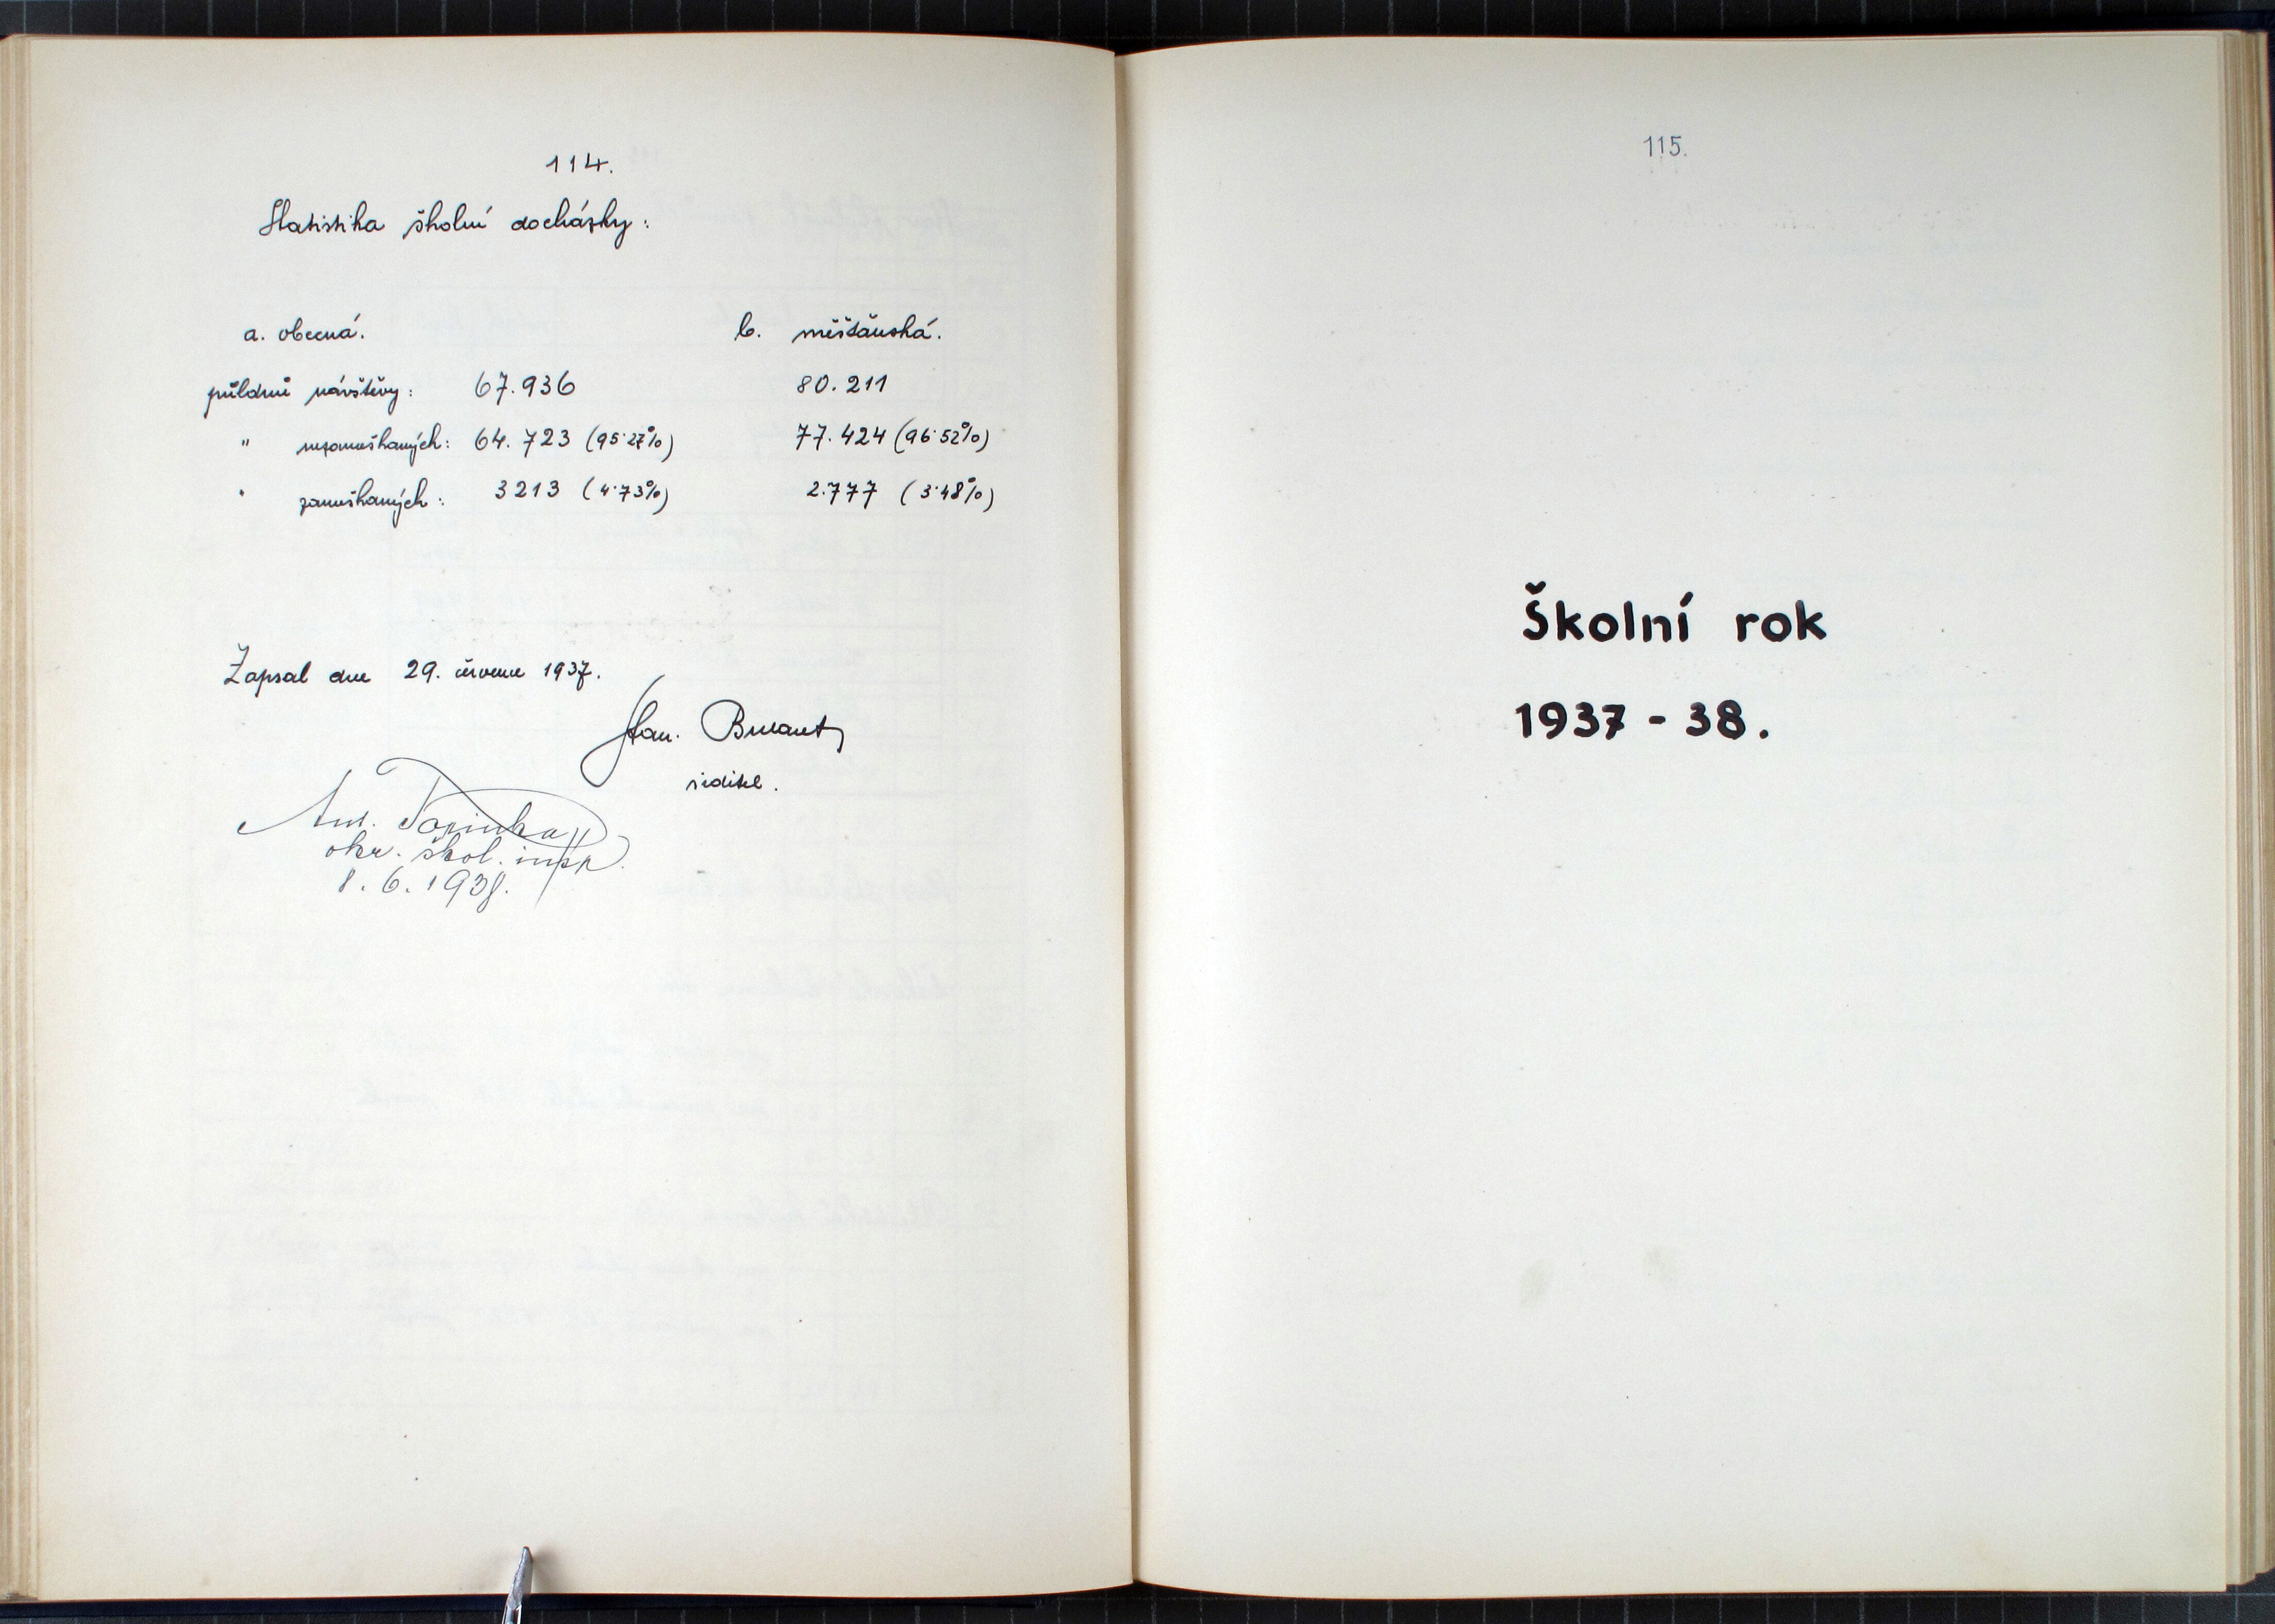 114.
Statistika školní docházky:
a. obecná. b. měšťanská.
půldnů návštěvy: 67.936 80.211
" nezameškaných: 64.723 (95·27%) 77.424 (96·52%)
" zameškaných: 3213 (4·73%) 2.777 (3·48%)
Zapsal dne 29. června 1937.
Stan.
ředitel.
Ant.
okr. škol. insp.
8. 6. 1938.
115.
Školní rok
1937 - 38.